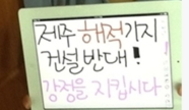 제주 해적기지
건설반대!
강정을 지킵시다